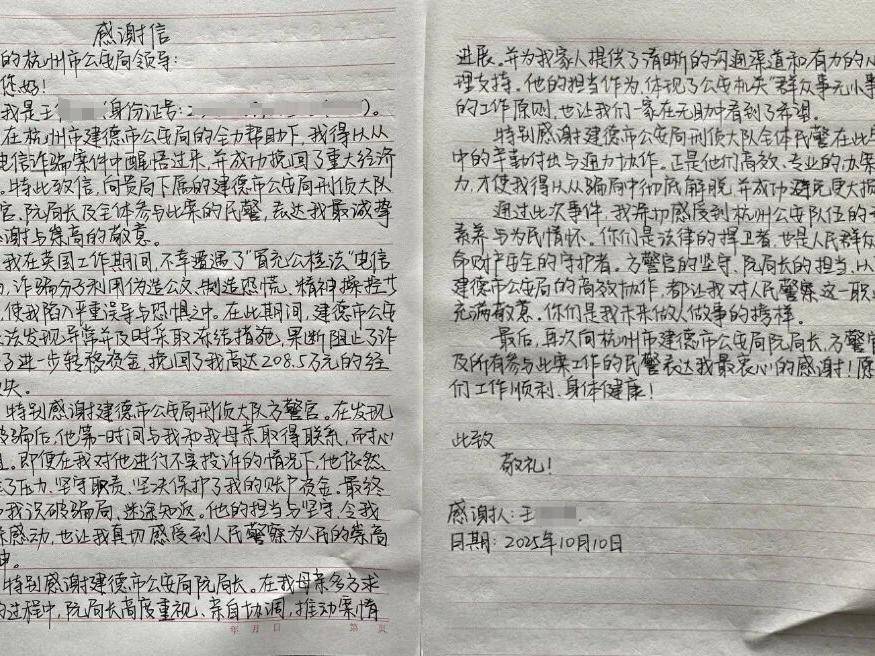 感谢信
的杭州市公安局领导:
您好!
我是王 (身份证号:2 )。
在杭州市建德市公安局的全力帮助下,我得以从
电信诈骗案件中醒悟过来,并成功挽回了重大经济
。特此致信,向贵局下属的建德市公安局刑侦大队
官、阮局长及全体参与此案的民警,表达我最诚挚
谢与崇高的敬意。
我在英国工作期间,不幸遭遇了“冒充公检法”电信
,诈骗分子利用伪造公文、制造恐慌、精神操控
,使我陷入严重误导与恐惧之中。在此期间,建德市公安
法发现异常并及时采取冻结措施,果断阻止了诈
子进一步转移资金,挽回了我高达208.5万元的经
失。
特别感谢建德市公安局刑侦大队方警官。在发现
被骗后,他第一时间与我和我母亲取得联系,耐心
。即便在我对他进行不实投诉的情况下,他依然
了压力,坚守职责、坚决保护了我的账户资金。最终
我识破骗局、迷途知返。他的担当与坚守,令我
感动,也让我真切感受到人民警察为人民的崇高
神。
特别感谢建德市公安局阮局长。在我母亲多方求
的过程中,阮局长高度重视、亲自协调,推动案情
年 月 日 第 页
进展。并为我家人提供了清晰的沟通渠道和有力的心
理支持。他的担当作为,体现了公安机关“群众事无小事
的工作原则,也让我们一家在无助中看到了希望。
特别感谢建德市公安局刑侦大队全体民警在此
中的辛勤付出与通力协作。正是他们高效、专业的办案
力,才使我得以从骗局中彻底解脱,并成功避免更大损
通过此次事件,我深切感受到杭州公安队伍的
素养与为民情怀。你们是法律的捍卫者,也是人民群众
命财产安全的守护者。方警官的坚守、阮局长的担当、以
建德市公安局的高效协作,都让我对人民警察这一职
充满敬意。你们是我未来做人做事的榜样。
最后,再次向杭州市建德市公安局阮局长、方警官
及所有参与此案工作的民警表达我最衷心的感谢!愿
们工作顺利、身体健康!
此致
敬礼!
感谢人:王
日期:2025年10月10日